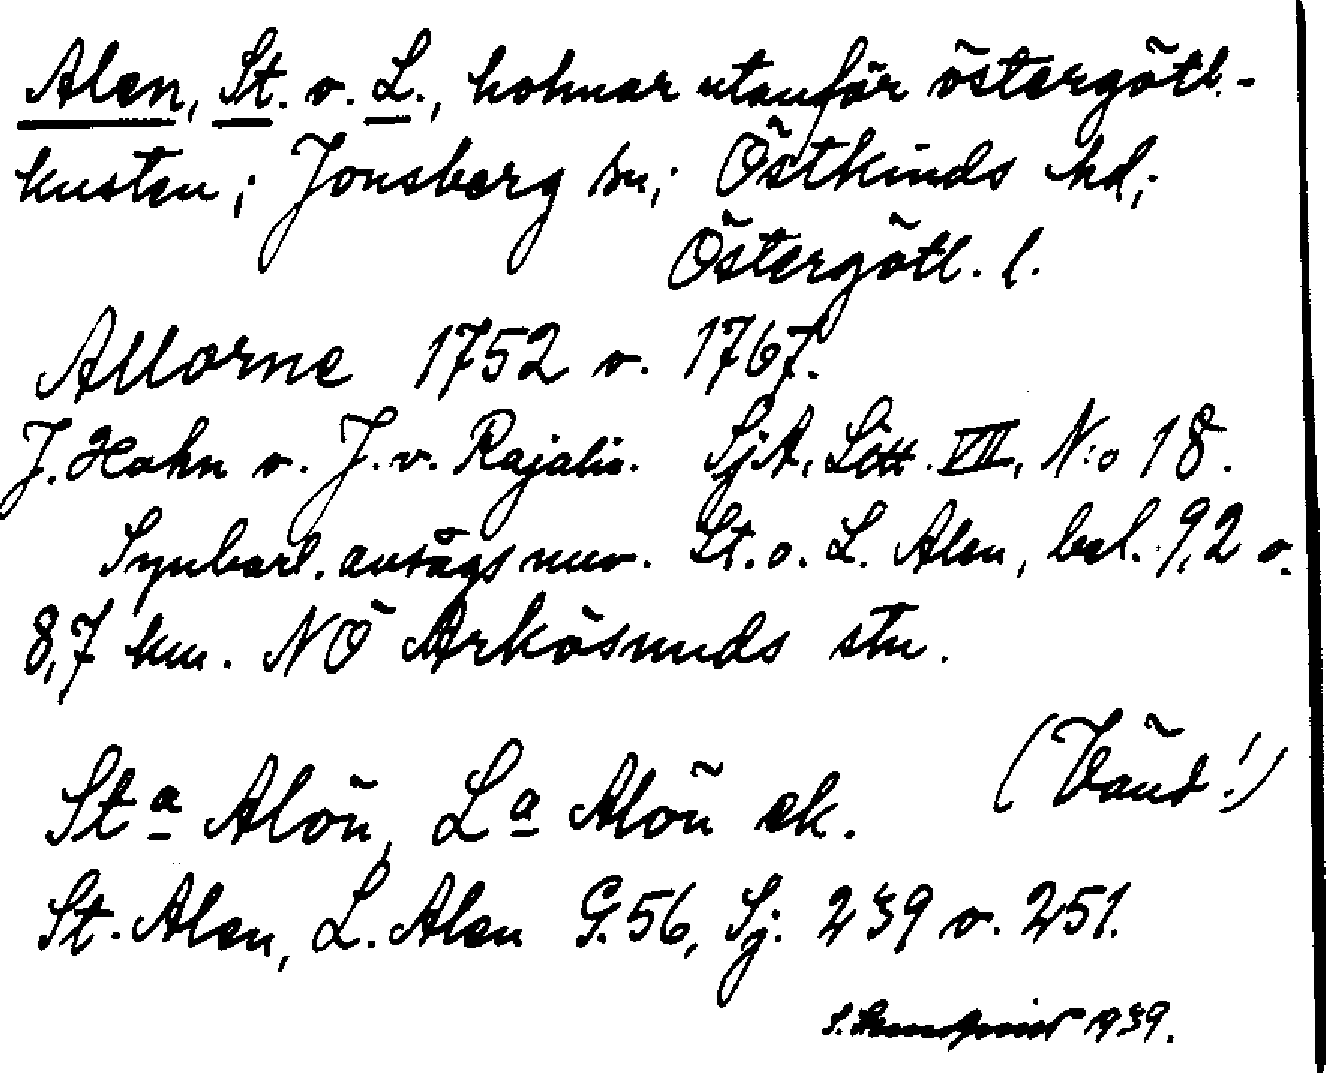 Alen, St. o. L., holmar utanför östergötl.-
kusten; Jonsberg sn; Östkinds hd;
Östergötl. l.
Allorne 1752 o. 1767.
J. Hahn o. J. v. Rajalin. SjA, Litt. VII, N:o 18.
Synbarl. avsågs nuv. St. o. L. Alen, bel. 9,2 o.
8,7 km. NÖ Arkösunds stn.
(Vänd!)
St a Alön, L a Alön ek.
St. Alen, L. Alen G. 56, Sj. 239 o. 251.
1939.